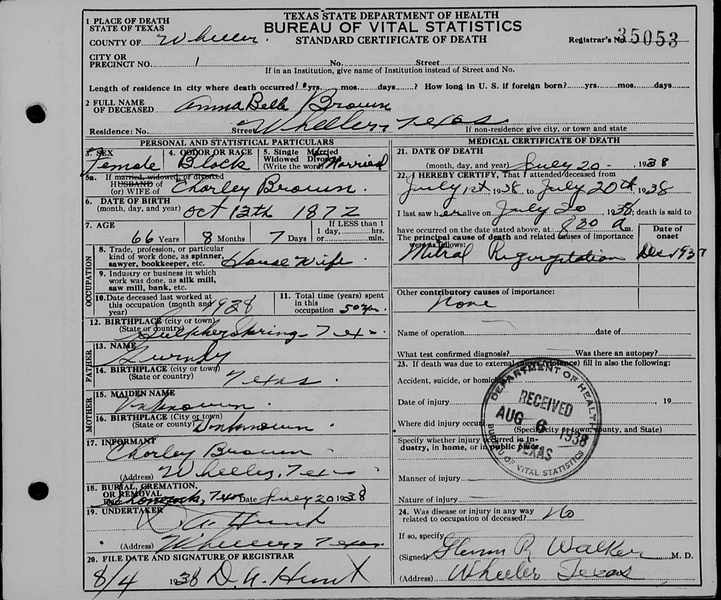 1 PLACE OF DEATH
STATE OF TEXAS
COUNTY OF Wheeler
TEXAS STATE DEPARTMENT OF HEALTH
BUREAU OF VITAL STATISTICS
STANDARD CERTIFICATE OF DEATH
Registrar's No. 35053
CITY OR
PRECINCT NO. 1 No. Street
If in an Institution, give name of Institution instead of Street and No.
Length of residence in city where death occurred yrs. mos. days? How long in U. S. if foreign born? yrs. mos. days
2 FULL NAME
OF DECEASED Anna Bell Brown
Residence: No. Street Wheeler, Texas
If non-residence give city, or town and state
PERSONAL AND STATISTICAL PARTICULARS
3. SEX Female
4. COLOR OR RACE Black
5. Single Married
Widowed Divorced
(Write the word) Married
5a. If married, widowed, or divorced
HUSBAND of
(or) WIFE of Charley Brown
6. DATE OF BIRTH
(month, day, and year) Oct 12th 1872
7. AGE
66 Years 8 Months 7 Days
If LESS than
1 day, hrs.
or min.
OCCUPATION
8. Trade, profession, or particular
kind of work done, as spinner,
sawyer, bookkeeper, etc. House Wife
9. Industry or business in which
work was done, as silk mill,
saw mill, bank, etc.
10. Date deceased last worked at
this occupation (month and
year) 1938
11. Total time (years) spent
in this
occupation 50 yrs.
12. BIRTHPLACE (city or town)
(State or country) Sulpher Spring - Tex
FATHER
13. NAME
14. BIRTHPLACE (city or town)
(State or country) Texas
MOTHER
15. MAIDEN NAME
Unknown
16. BIRTHPLACE (city or town)
(State or country) Unknown
17. INFORMANT
Charley Brown
(Address) Wheeler, Texas
18. BURIAL, CREMATION,
OR REMOVAL
Place Texas Date July 20 1938
19. UNDERTAKER
D. A. Hunt
(Address) Wheeler, Texas
20. FILE DATE AND SIGNATURE OF REGISTRAR
8/4 1938 D. A. Hunt
MEDICAL CERTIFICATE OF DEATH
21. DATE OF DEATH
(month, day, and year) July 20 - 1938
22. I HEREBY CERTIFY, That I attended deceased from
July 1st 1938 to July 20th 1938
I last saw her alive on July 20 1938, death is said to
have occurred on the date stated above, at 820 a m.
The principal cause of death and related causes of importance
were as follows:
Mitral Regurgitation
Date of
onset
Dec 1937
Other contributory causes of importance:
None
Name of operation date of
What test confirmed diagnosis? Was there an autopsy?
23. If death was due to external causes (violence) fill in also the following:
Accident, suicide, or homicide
Date of injury , 19
Where did injury occur
(Specify city or town, county, and State)
Specify whether injury occurred in in-
dustry, in home, or in public place
Manner of injury
Nature of injury
DEPARTMENT OF HEALTH
RECEIVED
AUG 6 1938
TEXAS
BUREAU OF VITAL STATISTICS
24. Was disease or injury in any way
related to occupation of deceased? No
If so, specify
(Signed) Glenn R. Walker M. D.
(Address) Wheeler Texas